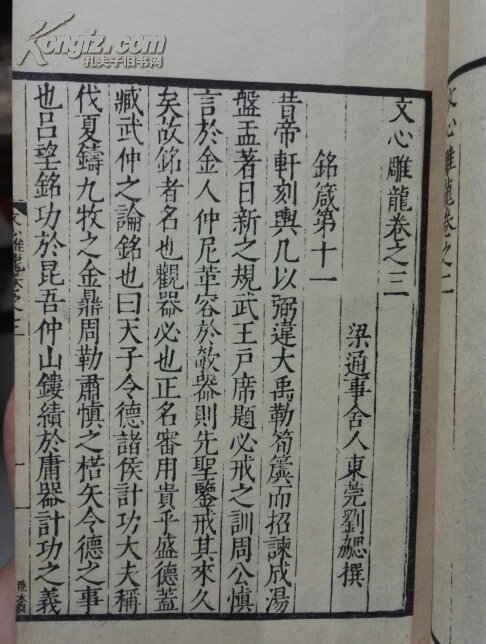 Kongfz.com
孔夫子旧书网
文心雕龍卷之二
文心雕龍卷之三
梁通事舍人東莞劉勰撰
銘箴第十一
昔帝軒刻輿几以弼違大禹勒筍簴而招諫成湯
盤盂著日新之規武王戶席題必戒之訓周公慎
言於金人仲尼革容於欹器則先聖鑒戒其來久
矣故銘者名也觀器必也正名審用貴乎盛德蓋
臧武仲之論銘也曰天子令德諸侯計功大夫稱
伐夏鑄九牧之金鼎周勒肅慎之楛矢令德之事
也呂望銘功於昆吾仲山鏤績於庸器計功之義
文心雕龍卷之三
一